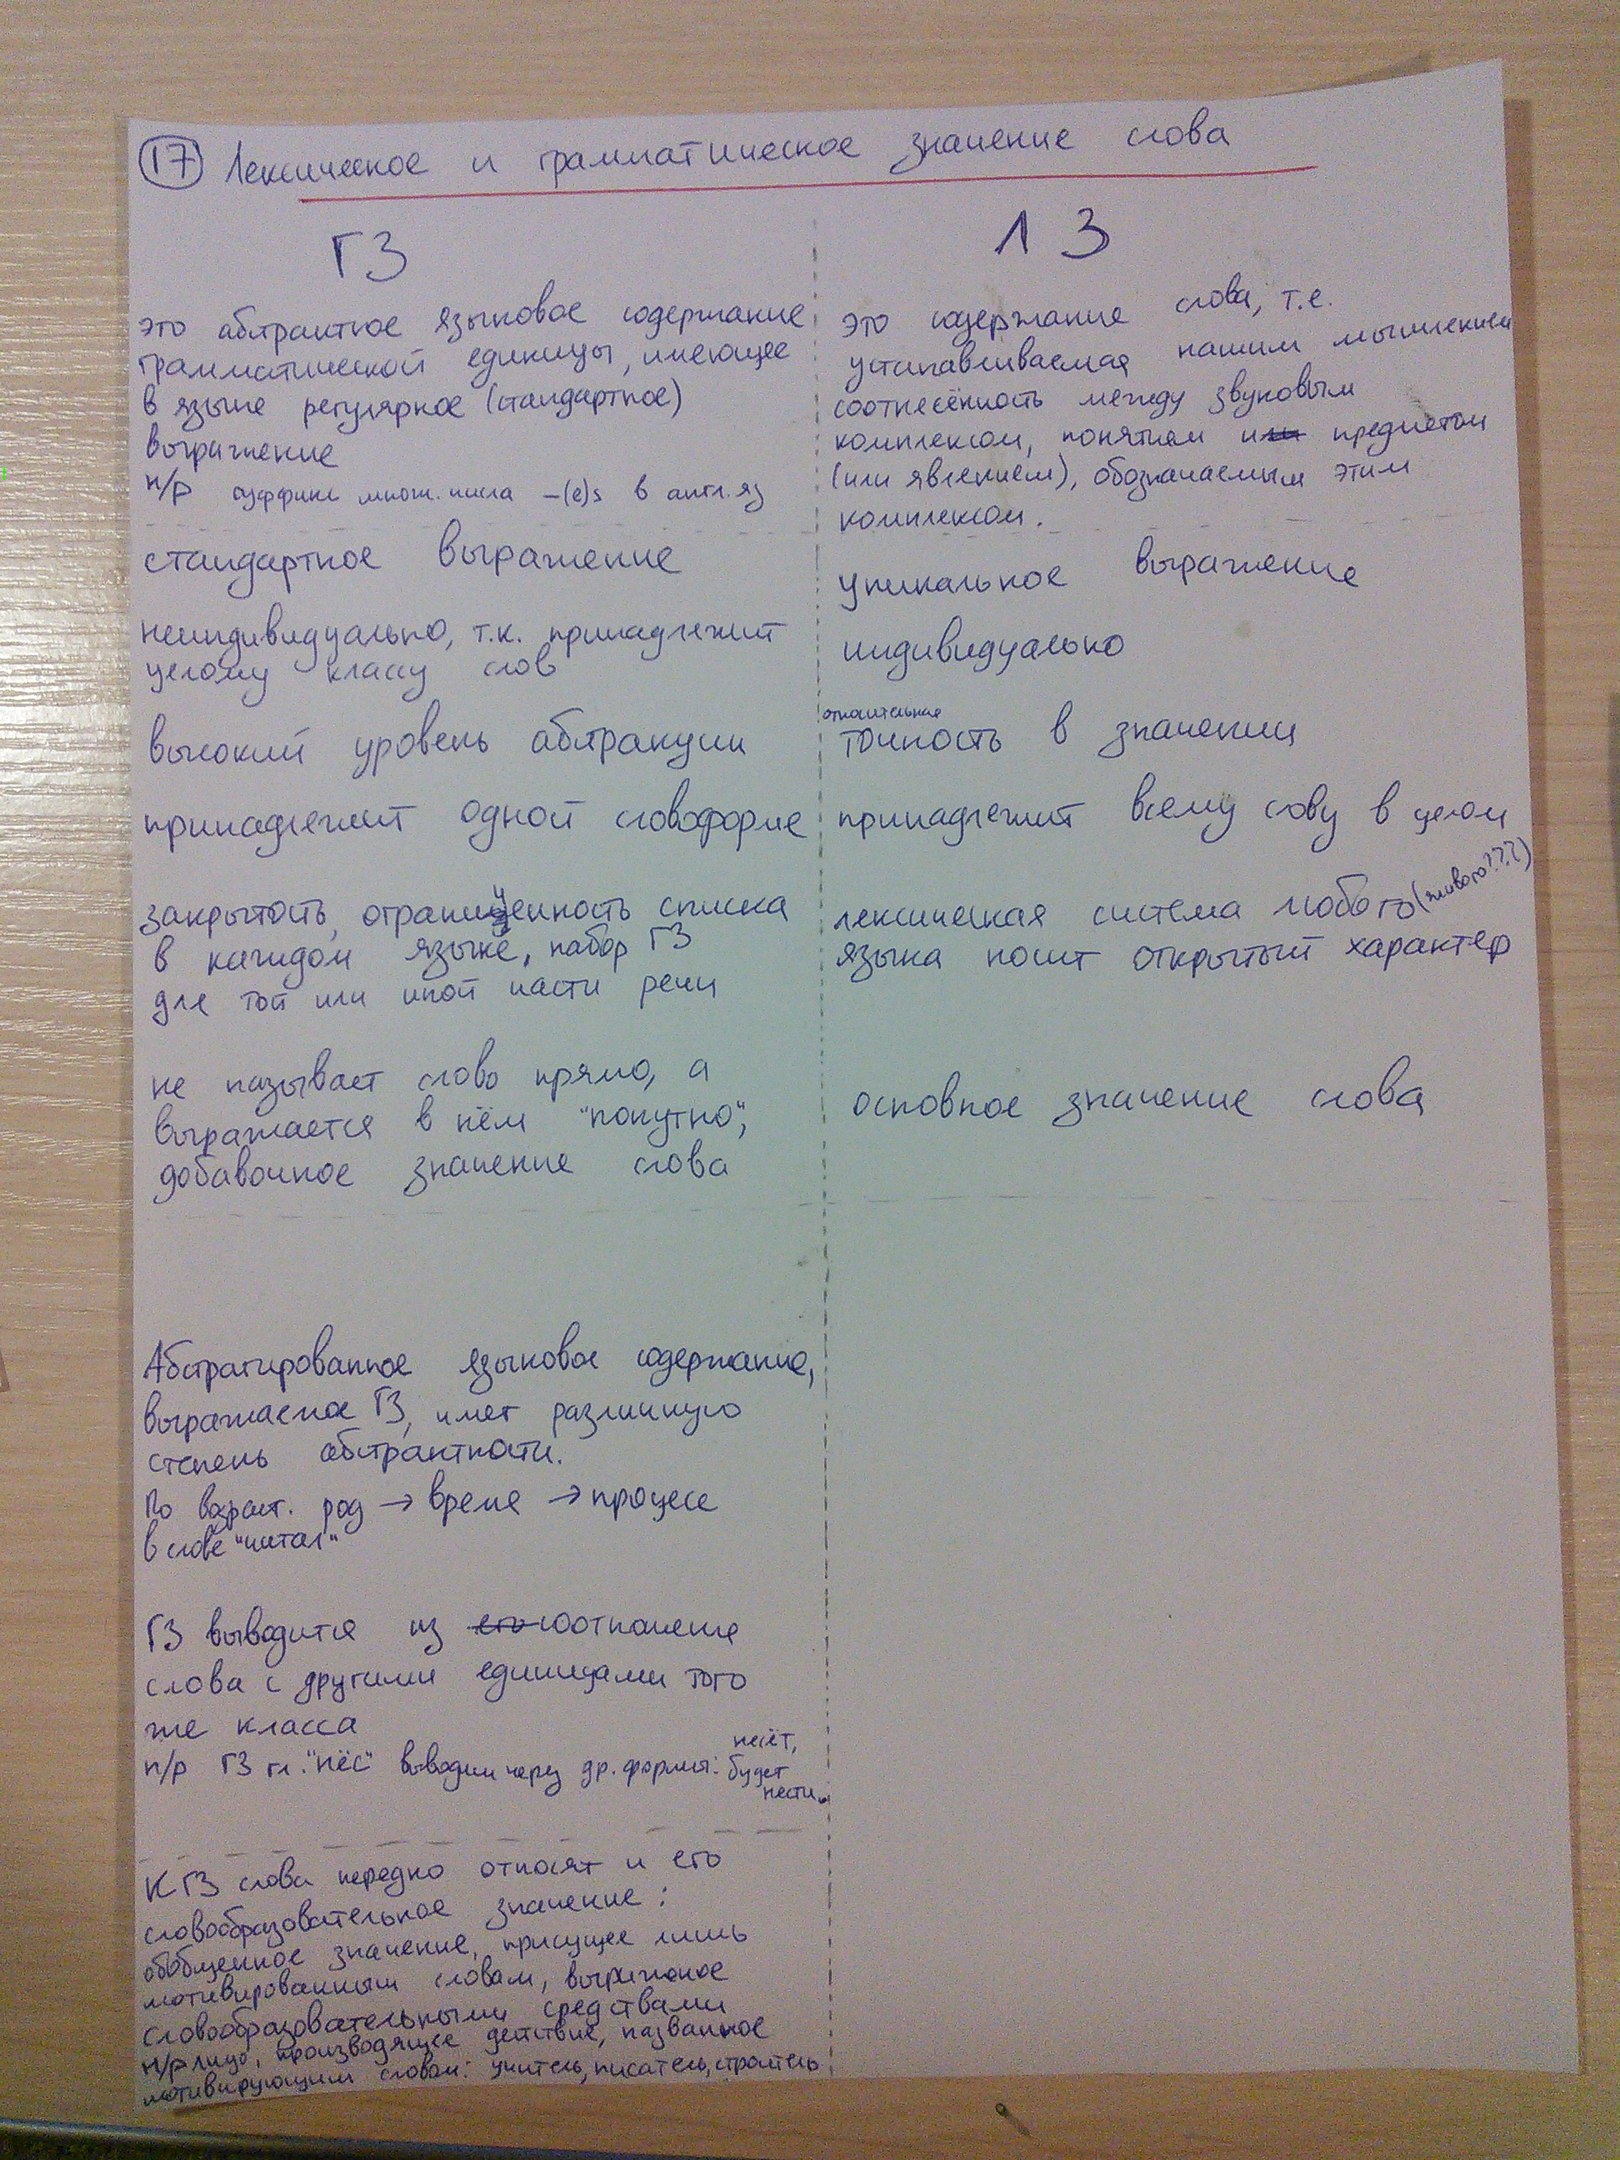 17 Лексическое и грамматическое значение слова
ГЗ
это абстрактное языковое содержание
грамматической единицы, имеющее
в языке регулярное (стандартное)
выражение
н/р суффикс множ. числа -(e)s в англ. яз
стандартное выражение
неиндивидуально, т.к. принадлежит
целому классу слов
высокий уровень абстракции
принадлежит одной словоформе
закрытость, ограниченность списка
в каждом языке, набор ГЗ
для той или иной части речи
не называет слово прямо, а
выражается в нём "попутно",
добавочное значение слова
Абстрагированное языковое содержание,
выражаемое ГЗ, имет различную
степень абстрактности.
По возраст. род → время → процесс
в слове "читал"
ГЗ выводится из его соотношение
слова с другими единицами того
же класса
н/р ГЗ гл. "нёс" выводим через др. формы: несёт,
будет
нести.
К ГЗ слова нередко относят и его
словообразовательное значение:
обобщенное значение, присущее лишь
мотивированным словам, выражаемое
словообразовательными средствами
н/р лицо, производящее действие, названное
мотивирующим словом: учитель, писатель, строитель
ЛЗ
это содержание слова, т.е.
устанавливаемая нашим мышлением
соотнесённость между звуковым
комплексом, понятием или предметом
(или явлением), обозначаемым этим
комплексом.
уникальное выражение
индивидуально
относительная
точность в значении
принадлежит всему сову в целом
лексическая система любого (живого???)
языка носит открытый характер
основное значение слова